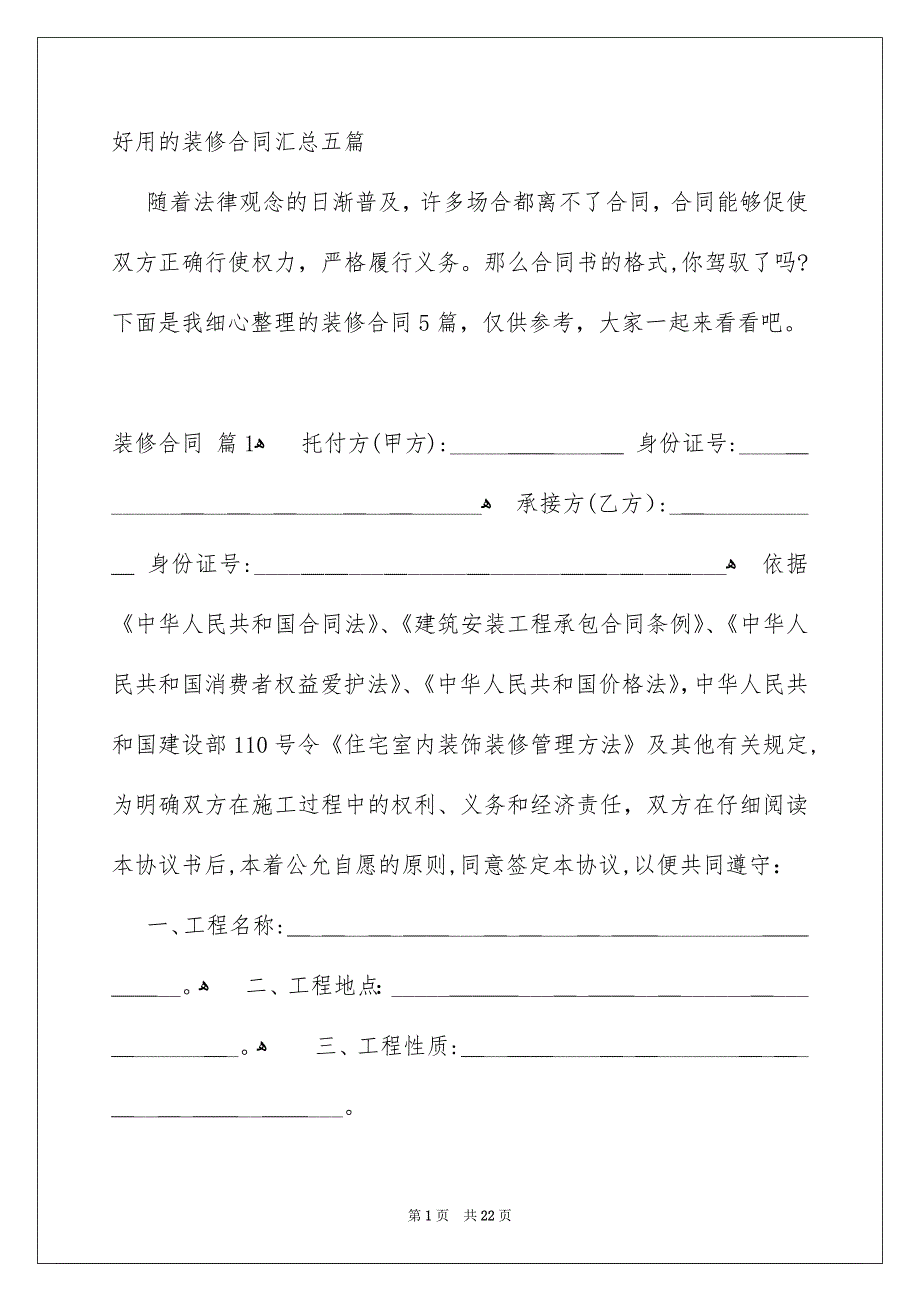 好用的装修合同汇总五篇
随着法律观念的日渐普及，许多场合都离不了合同，合同能够促使
双方正确行使权力，严格履行义务。那么合同书的格式,你驾驭了吗?
下面是我细心整理的装修合同5篇，仅供参考，大家一起来看看吧。
装修合同 篇1ﻫ 托付方(甲方):_______________ 身份证号:______
________________________________ﻫ 承接方(乙方）:____________
__ 身份证号:_________________________________________ﻫ 依据
《中华人民共和国合同法》、《建筑安装工程承包合同条例》、《中华人
民共和国消费者权益爱护法》、《中华人民共和国价格法》，中华人民共
和国建设部110号令《住宅室内装饰装修管理方法》及其他有关规定,
为明确双方在施工过程中的权利、义务和经济责任，双方在仔细阅读
本协议书后,本着公允自愿的原则,同意签定本协议,以便共同遵守：
一、工程名称:_____________________________________________
______。ﻫ 二、工程地点：____________________________________
___________。ﻫ 三、工程性质:______________________________
____________________。
第1页 共22页